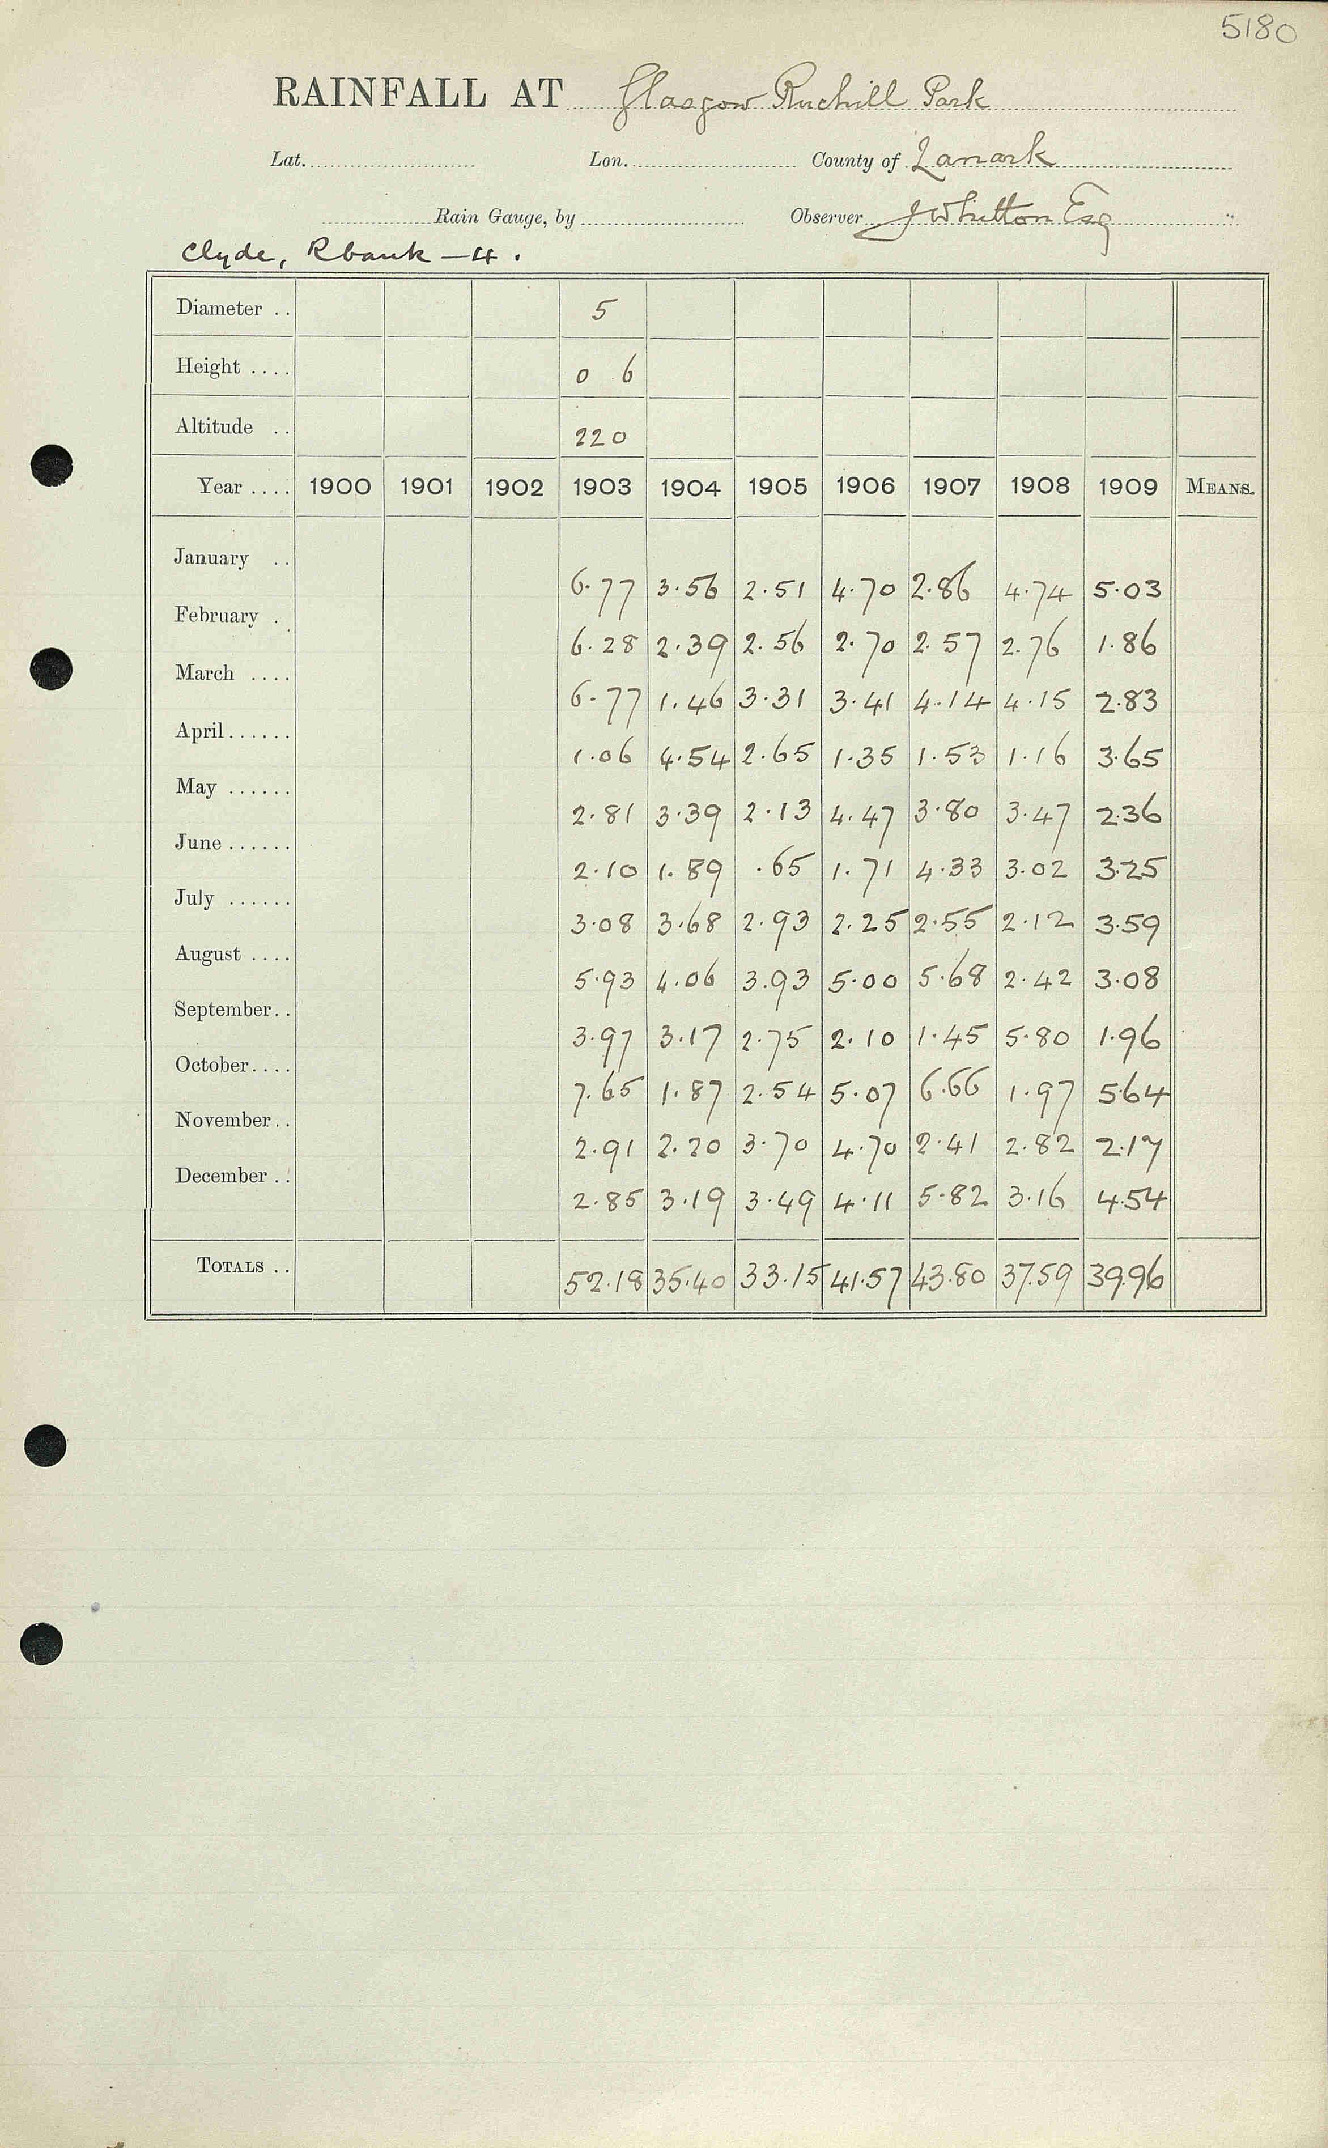 5180
RAINFALL AT Glasgow Ruchill Park
Lat. Lon. County of Lanark
Rain Gauge, by Observer J Whitton Esq
Clyde, R bank — 4.
Diameter .. 5
Height .... 0 6
Altitude .. 220
Year .... 1900 1901 1902 1903 1904 1905 1906 1907 1908 1909 MEANS.
January ..
6.77 3.56 2.51 4.70 2.86 4.74 5.03
February .
6.28 2.39 2.56 2.70 2.57 2.76 1.86
March ....
6.77 1.46 3.31 3.41 4.14 4.15 2.83
April......
1.06 4.54 2.65 1.35 1.53 1.16 3.65
May ......
2.81 3.39 2.13 4.47 3.80 3.47 2.36
June ......
2.10 1.89 .65 1.71 4.33 3.02 3.25
July ......
3.08 3.68 2.93 2.25 2.55 2.12 3.59
August ....
5.93 4.06 3.93 5.00 5.68 2.42 3.08
September..
3.97 3.17 2.75 2.10 1.45 5.80 1.96
October....
7.65 1.87 2.54 5.07 6.66 1.97 5.64
November..
2.91 2.20 3.70 4.70 2.41 2.82 2.17
December ..
2.85 3.19 3.49 4.11 5.82 3.16 4.54
TOTALS .. 52.18 35.40 33.15 41.57 43.80 37.59 39.96